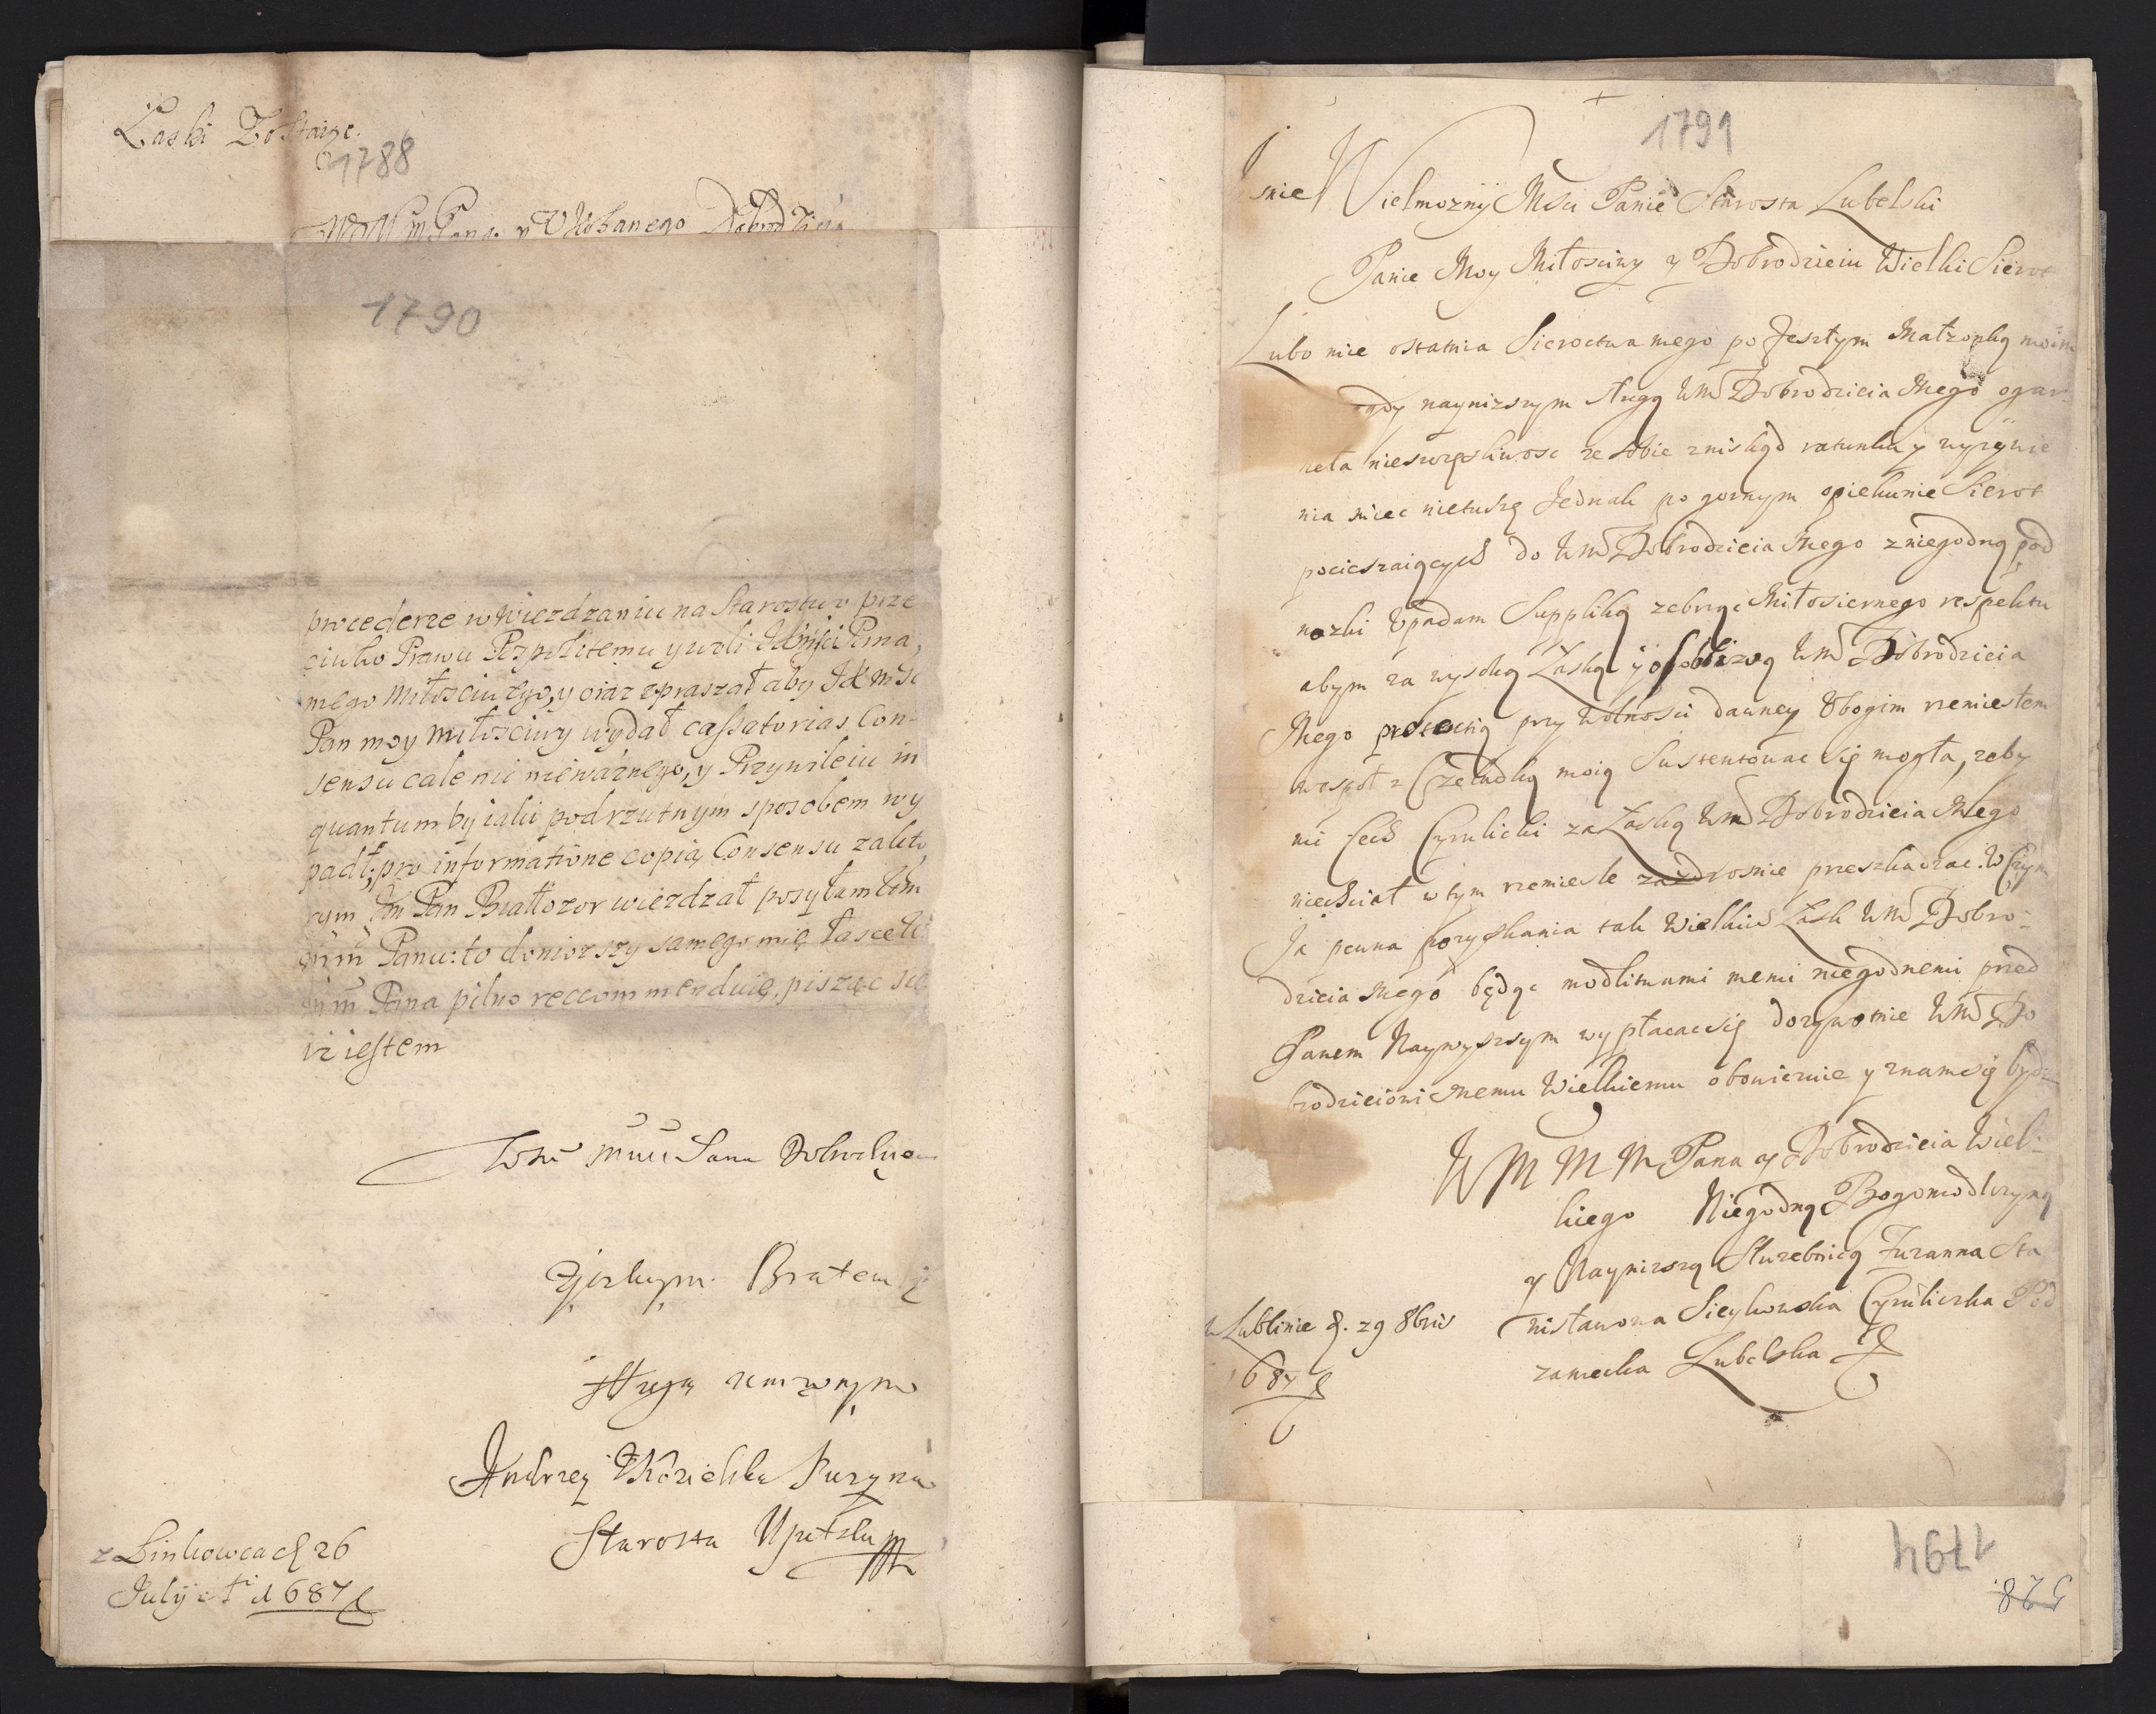 Łaski Zostaiąc
1788
Pana y Dobrod
1790
procederze w wiezdzaniu na Starostwo prze
ciwko Prawu Pospolitemu y woli Pana
mego Miłosciwego, y oraz upraszał aby
Pan moy miłosciwy wydał cassatorias Con-
sensu cale nic nieważnego, y Przywileiu in
quantum by iaki podrzutnym sposobem wy
padł; pro informatione copią Consensu za kto
rym Pan Białłozor wiezdzał posyłam
Panu: to doniozszy samego mię łasce
Pana pilno reccommenduię, pisząc się
iż iestem
Pana
Bratem y
sługą
Andrzey Kozielsko Puzyna
Starosta Upitski
z Linkowca d 26
July A 1687
1791
Jasnie Wielmozny Msci Panie Starosta Lubelski
Panie Moy Miłosciwy y Dobrodzieiu Wielki Sierot
Lubo mie ostatnia Sieroctwa mego po Zeszłym Małzonku moim
gdy naynizszym sługą WM Dobrodzieia Mego ogar-
neła nieszczęsliwosc ze sobie znikąd ratunku y wyzywie
nia miec nietuszę Jednak po gornym opiekunie Sierot
pocieszaiących do WM Dobrodzieia Mego z niegodną pod
nozki Upadam Suppliką zebrząc Miłosiernego respektu
abym za wysoką Łaską y osobliwą WM Dobrodzieia
Mego protectią przy Wolnosci dawney Ubogim rzemiesłem
wespoł z Czeladką moią Sustentowac się mogła, zeby
mi Cech Cyrulicki za Łaską WM Dobrodzieia Mego
niechciał w tym rzemiesle zazdrosnie przeszkadzac. W czym
Ja pewna pozyskania tak Wielkich Łask WM Dobro-
dzieia Mego będąc modlitwami memi niegodnemi przed
Panem Naywyszszym wypłacac się dozywotnie WM Do
brodzieiowi Memu Wielkiemu obowiezuie y znam się bydz
W M M M Pana y Dobrodzieia Wiel-
kiego Niegodną Bogomodlczyną
y Naynizszą Sluzebnicą Zuzanna Sta
nisławowa Cyruliczka Pod
zamecka Lubelska
w Lublinie d. 29 8bris
1687
1794
528